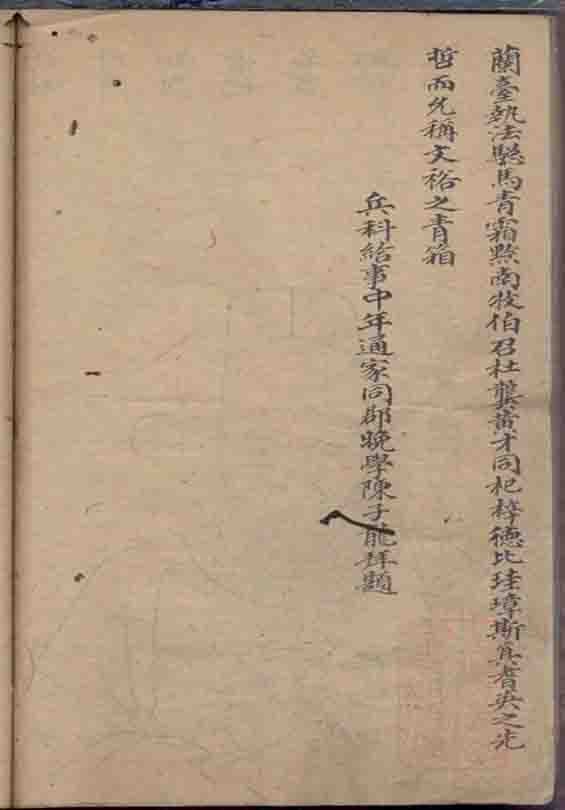 蘭臺執法驄馬青霜黔南牧伯召杜龔黃才同杞梓德比珪璋斯真耆英之先
哲而允稱文裕之青箱
兵科給事中年通家同郡晚學陳子龍拜題